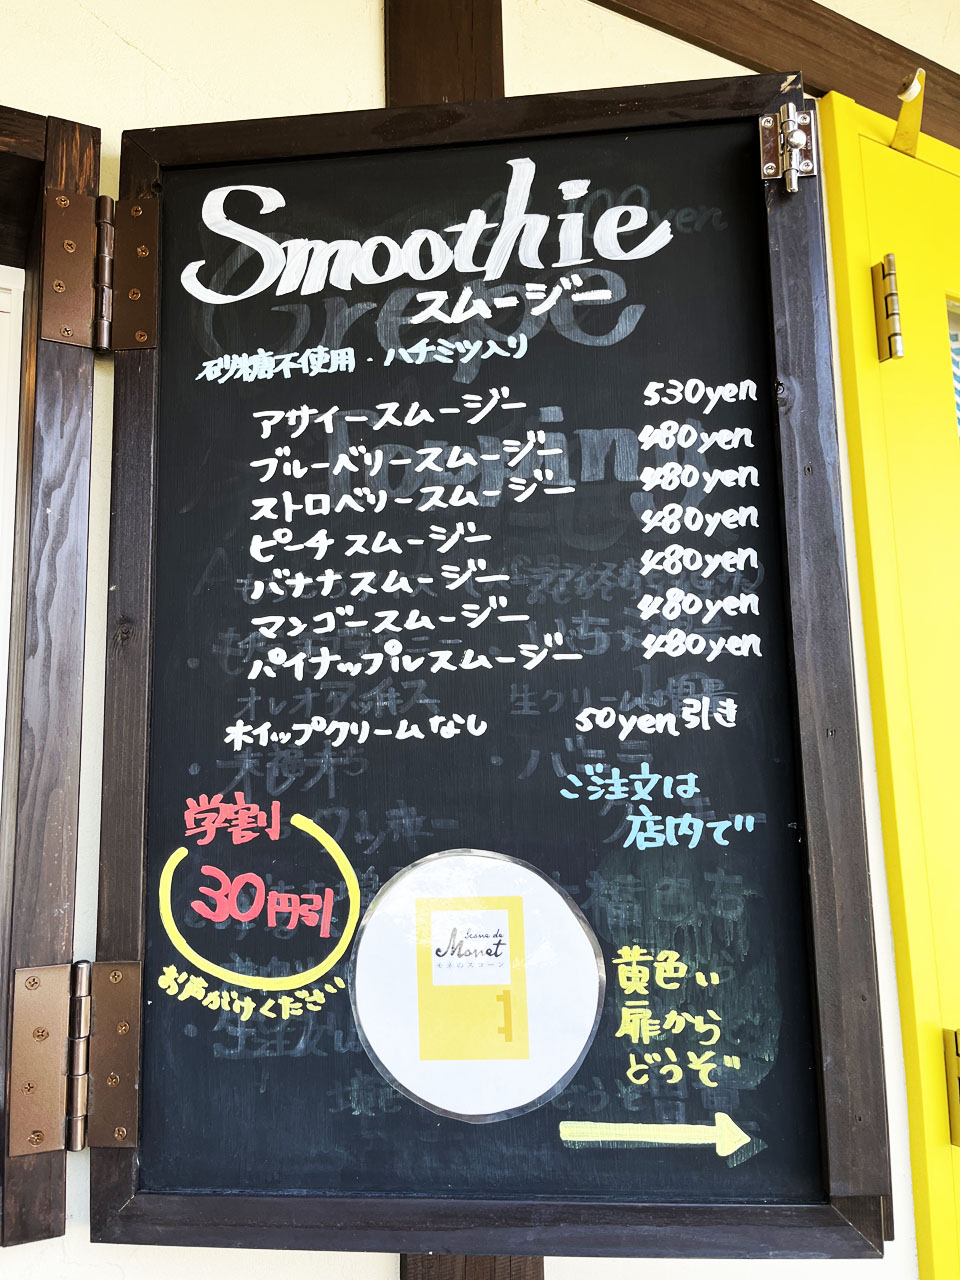 Smoothie
スムージー
砂糖不使用・ハチミツ入り
アサイースムージー 530yen
ブルーベリースムージー 480yen
ストロベリースムージー 480yen
ピーチスムージー 480yen
バナナスムージー 480yen
マンゴースムージー 480yen
パイナップルスムージー 480yen
ホイップクリームなし 50yen引き
ご注文は
店内で
学割
30円引
お声がけください
Scone de
Monet
モネのスコーン
黄色い
扉から
どうぞ
Crepe
Topping